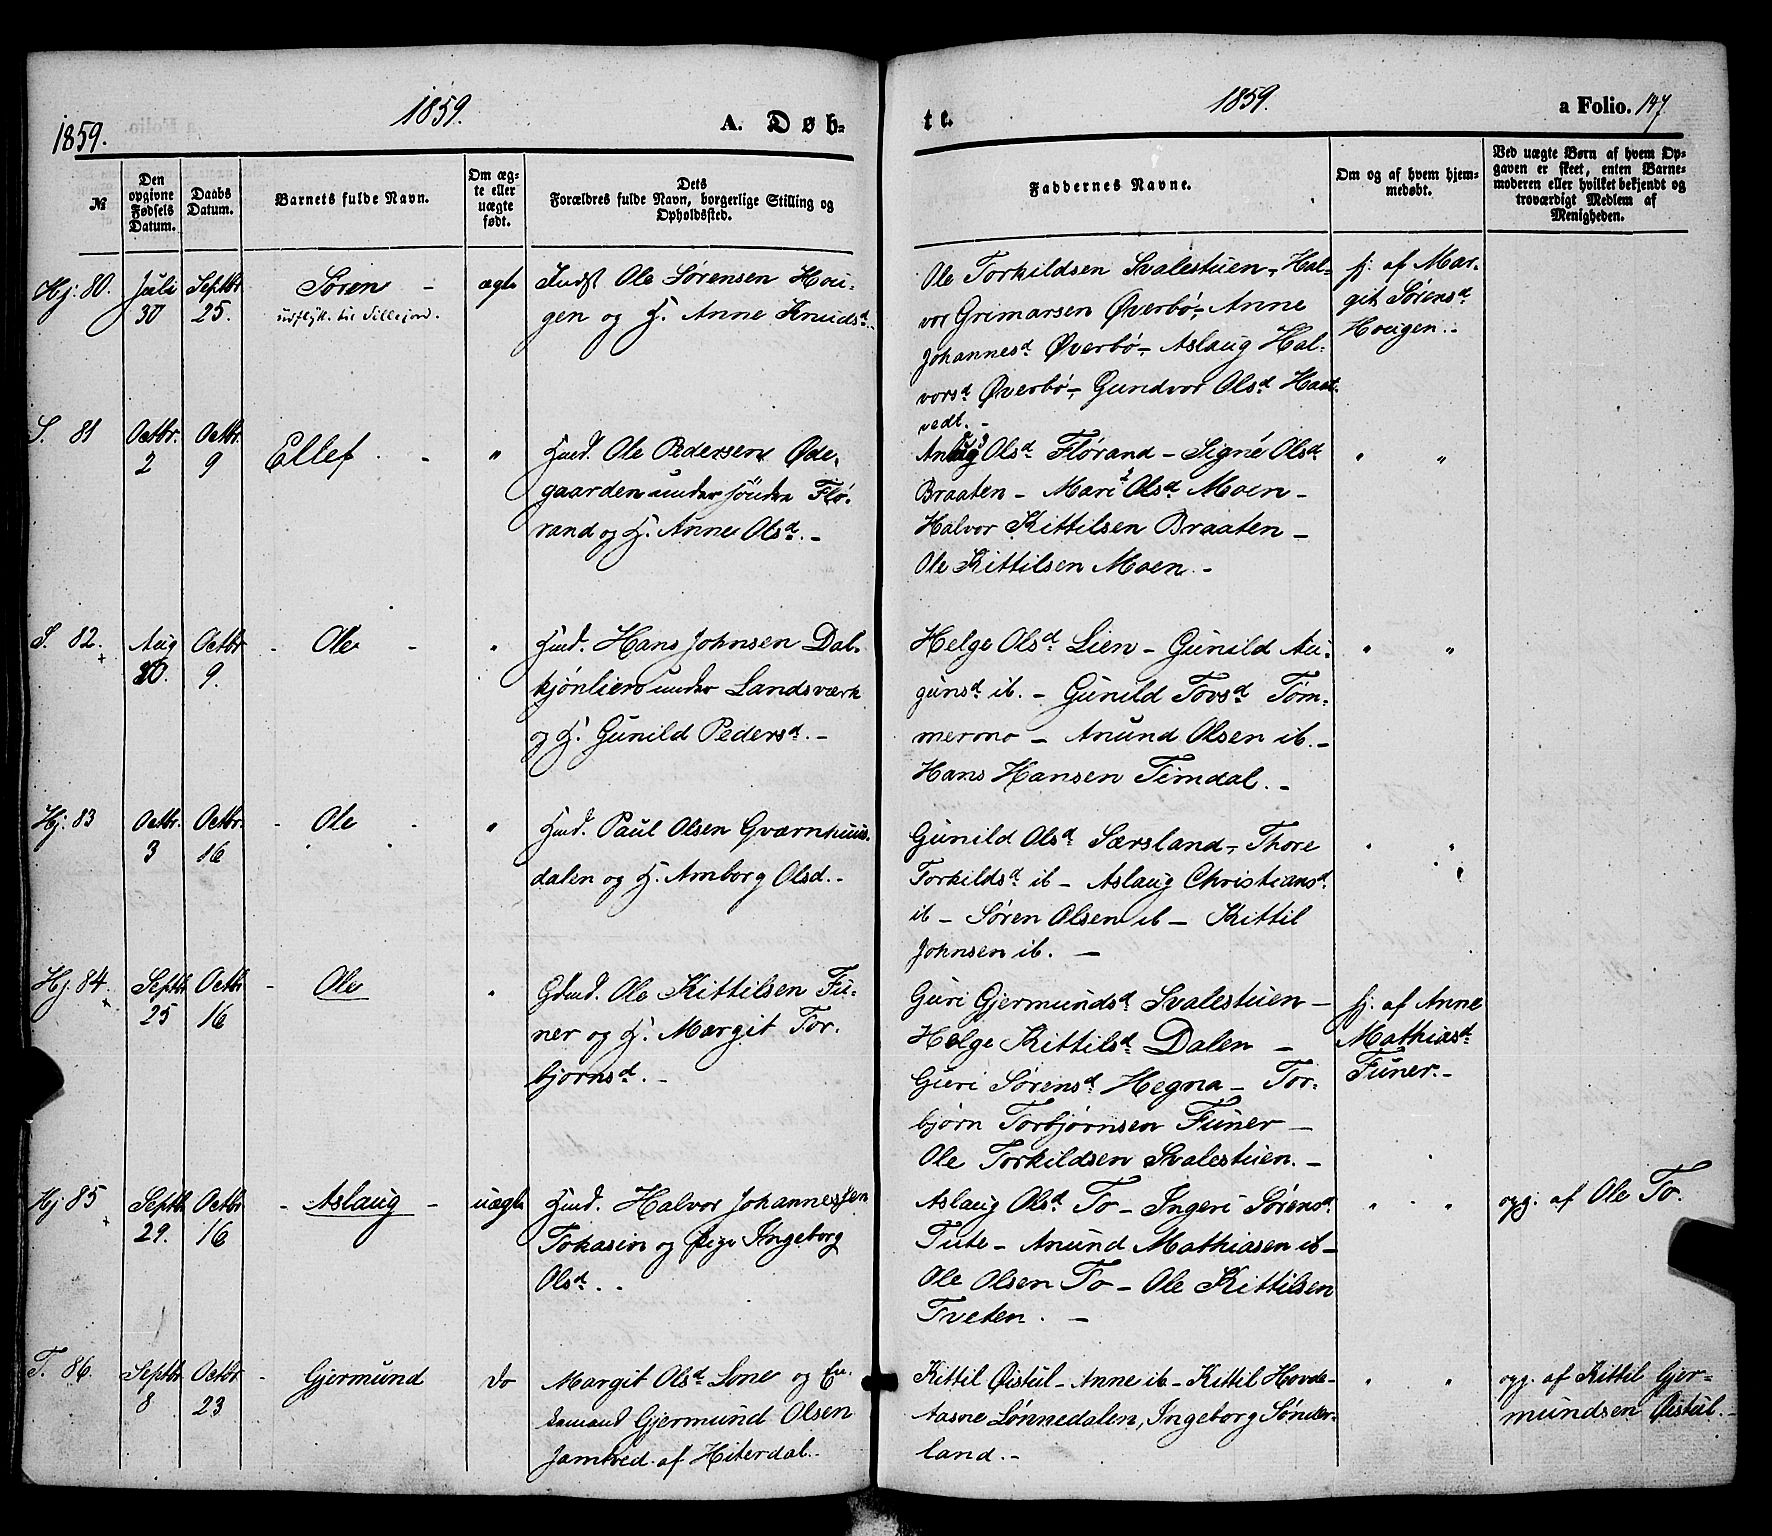 1859.
1859.
A. Døb-
te.
1859.
a Folio. 147.
№
Den opgivne Fødsels Datum.
Daabs Datum.
Barnets fulde Navn.
Om æg-
te eller
uægte
født.
Dets
Forældres fulde Navn, borgerlige Stilling og
Opholdssted.
Faddernes Navne.
Om og af hvem hjem-
medøbt.
Ved uægte Børn af hvem Op-
gaven er skeet, enten Barne-
moderen eller hvilket bekjendt og
troværdigt Medlem af
Menigheden.
Hj. 80.
Juli
30
Septbr
25.
Søren -
udflyt. til Sillejord.
ægte
Indst Ole Sørensen Hou-
gen og H. Anne Knudsd.
Ole Torkildsen Svalestuen, Hal-
vor Grimarsen Øverbø, Anne
Johannesd. Øverbø, Aslaug Hal-
vorsd. Øverbø, Gundvor Olsd. Haat
vedt. -
hj. af Mar-
git Sørensd.
Hougen. -
S. 81
Octbr.
2
Octbr.
9
Ellef. -
"
Hmd. Ole Pedersen Øde-
gaarden under søndre Flø-
rand og H. Anne Olsd. -
Olsd. Flørand - Signe Olsd.
Braaten - Mari Olsd. Moen -
Halvor Kittilsen Braaten -
Ole Kittilsen Moen. -
" "
S. 82.
+
Aug
20.
Octbr
9.
- Ole -
"
Hmd. Hans Johnsen Dal-
kjønlien under Landsværk
og H. Gunild Pedersd. -
Helge Olsd. Lien - Gunild Au-
gunsd. ib. - Gunild Tovsd. Tøm-
mermo - Anund Olsen ib. -
Hans Hansen Timdal. -
" "
Hj. 83
Octbr.
3
Octbr.
16
- Ole -
"
Hmd. Paul Olsen Gværnhuus-
dalen og H. Amborg Olsd. -
Gunild Olsd. Særsland, Thore
Torkildsd. ib - Aslaug Christiansd.
ib - Søren Olsen ib - Kittil
Johnsen ib. -
" "
Hj. 84.
+
Septbr
25
Octbr
16
- Ole
"
Gdmd. Ole Kittilsen Fu-
ner og H. Margit Tor-
bjørnsd. -
Guri Gjermundsd. Svalestuen -
Helge Kittilsd. Dalen -
Guri Sørensd. Hegna - Tor-
bjørn Torbjørnsen Funer -
Ole Torkildsen Svalestuen. -
hj. af Anne
Mathiasd.
Funer. -
Hj 85
+
Septbr
29.
Octbr
16
- Aslaug -
uægte
Hmd. Halvor Johannessen
Tokasin og pige Ingeborg
Olsd. -
Aslaug Olsd. To - Ingeri Sørensd.
Tute - Anund Mathiasen ib -
Ole Olsen To - Ole Kittilsen
Tveten. -
" "
opg. af Ole To.
T. 86.
Septbr
8
Octbr
23
- Gjermund
do
Margit Olsd. Lone og En-
kemand Gjermund Olsen
Jamtved af Hiterdal. -
Kittil Øistul - Anne ib - Kittil Hovde-
Aasne Lønnedalen, Ingeborg Sønder-
land. -
" "
opg. af Kittil Gjer-
mundsen Øistul. -